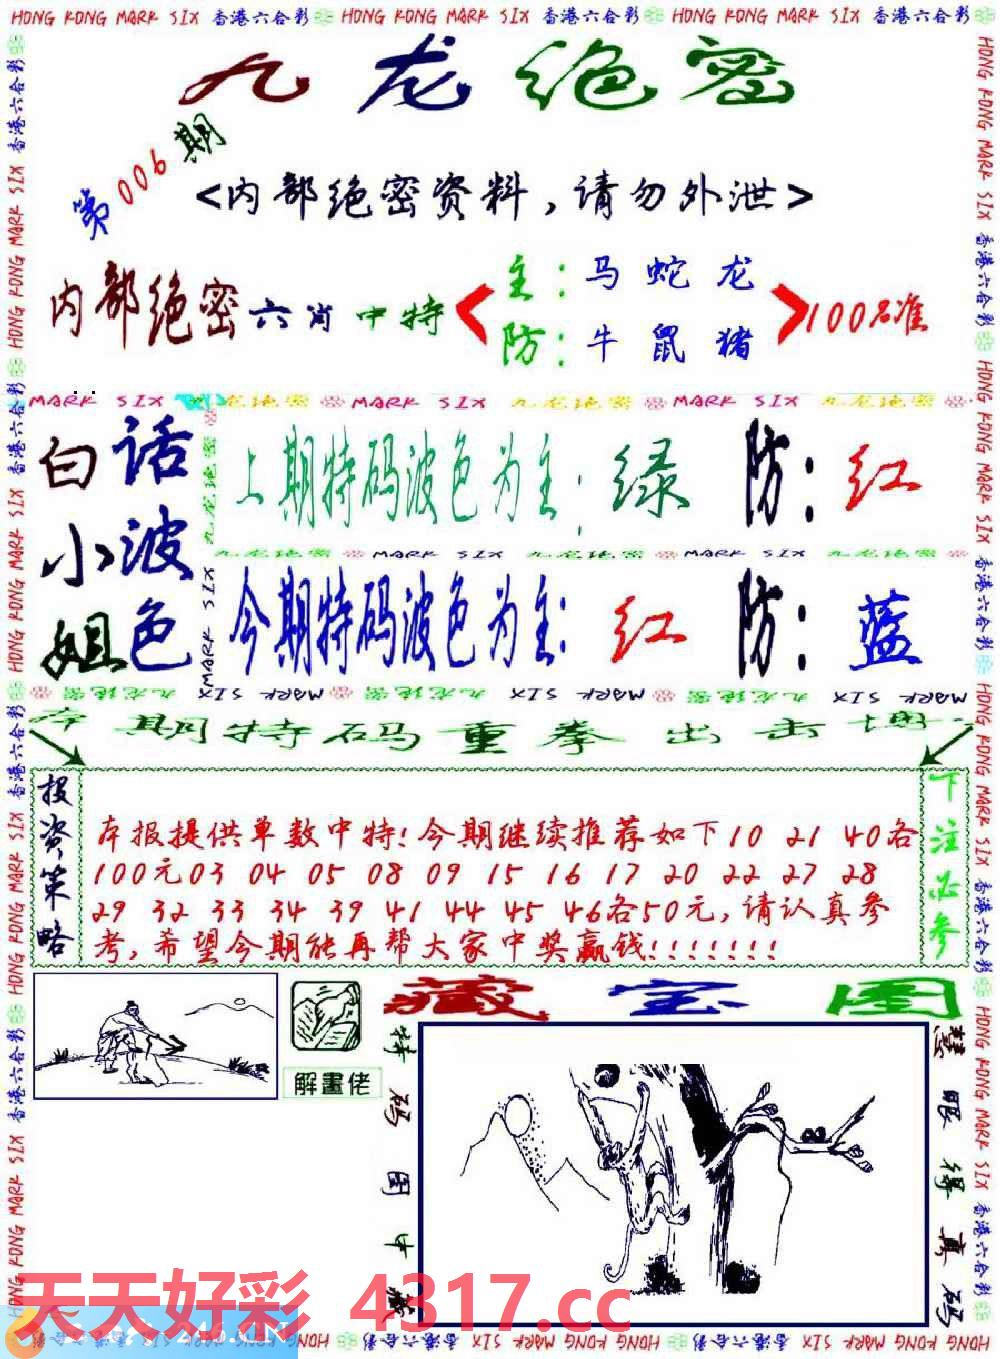 HONG KONG MARK SIX 香港六合彩 HONG KONG MARK SIX 香港六合彩 HONG KONG MARK SIX 香港六合彩
九龙绝密
第006期
<内部绝密资料，请勿外泄>
内部绝密六肖中特
主：马 蛇 龙
防：牛 鼠 猪
100%准
MARK SIX 九龙绝密 MARK SIX 九龙绝密 MARK SIX 九龙绝密
白小姐
话波色
上期特码波色为主：绿 防：红
九龙绝密 MARK SIX 九龙绝密 MARK SIX 九龙绝密
今期特码波色为主：红 防：蓝
本期特码重拳出击
投资策略
本报提供单数中特！今期继续推荐如下10 21 40各
100元03 04 05 08 09 15 16 17 20 22 27 28
29 32 33 34 39 41 44 45 46各50元，请认真参
考，希望今期能再帮大家中奖赢钱！！！！！！！
下注必参
藏宝图
解畫佬
特码图中藏
慧眼得真码
天天好彩 4317.cc